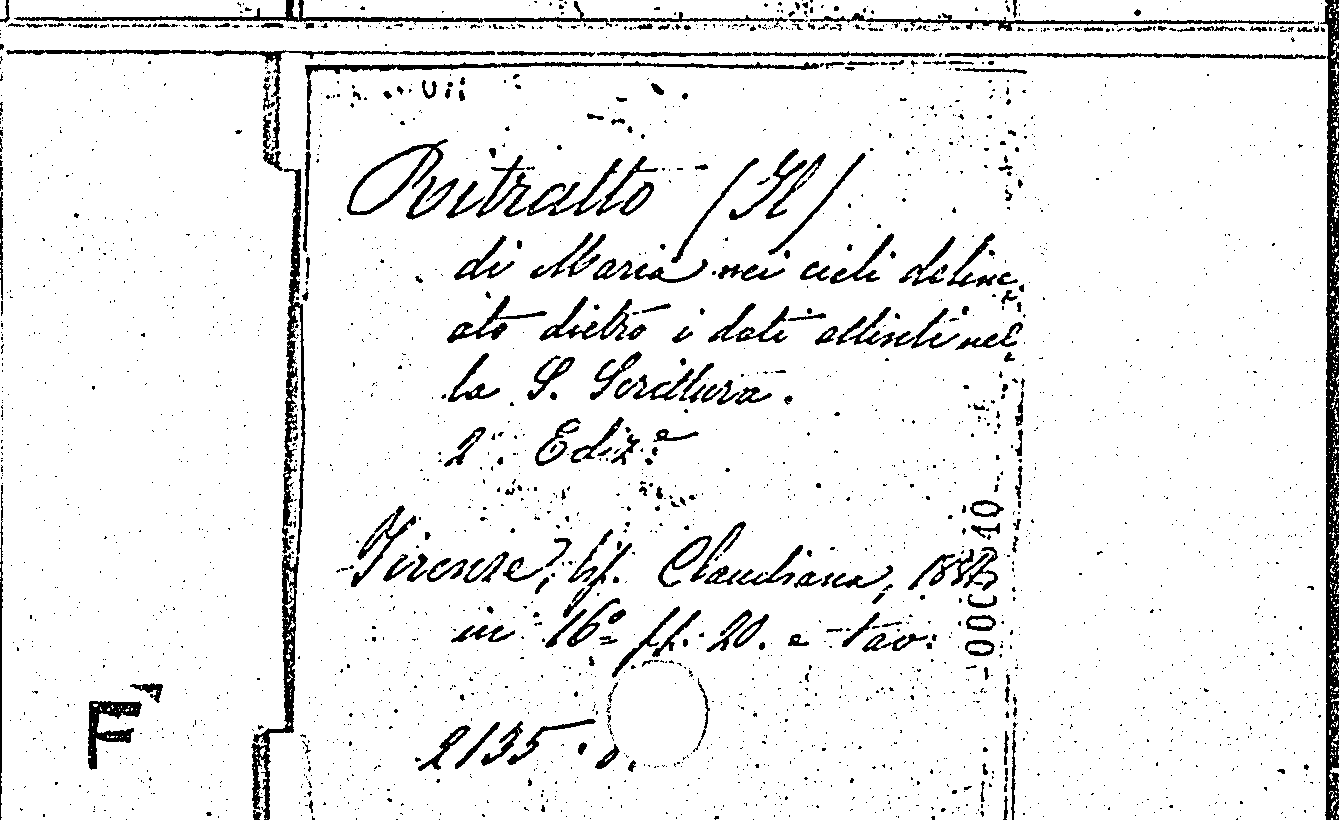 Ritratto (Il)
di Maria nei cieli deline
ato dietro i dati attinti nel
la S. Scrittura.
2ª. Ediz.e
Firenze, tip. Claudiana,
in 16º pp. 20. e tav.
2135
F